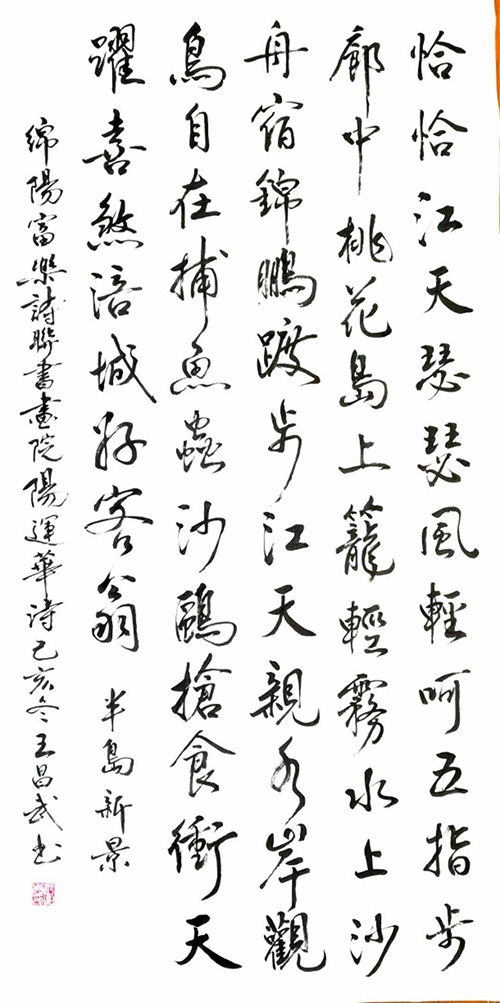 恰恰江天瑟瑟風輕呵五指步
廊中桃花島上籠輕霧水上沙
舟宿錦鵬踱步江天親水岸觀
鳥自在捕魚蟲沙鷗搶食衝天
躍喜煞涪城好客翁 半島新景
綿陽富樂詩聯書畫院陽運華詩己亥冬王昌武書